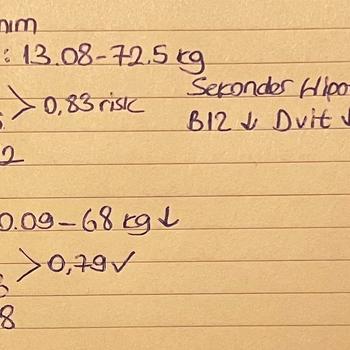 : 13.08-72.5 kg
> 0,83 risk
Sekonder Hipo
B12 ↓ Dvit ↓
2
0.09-68 kg ↓
> 0,79 ✓
8